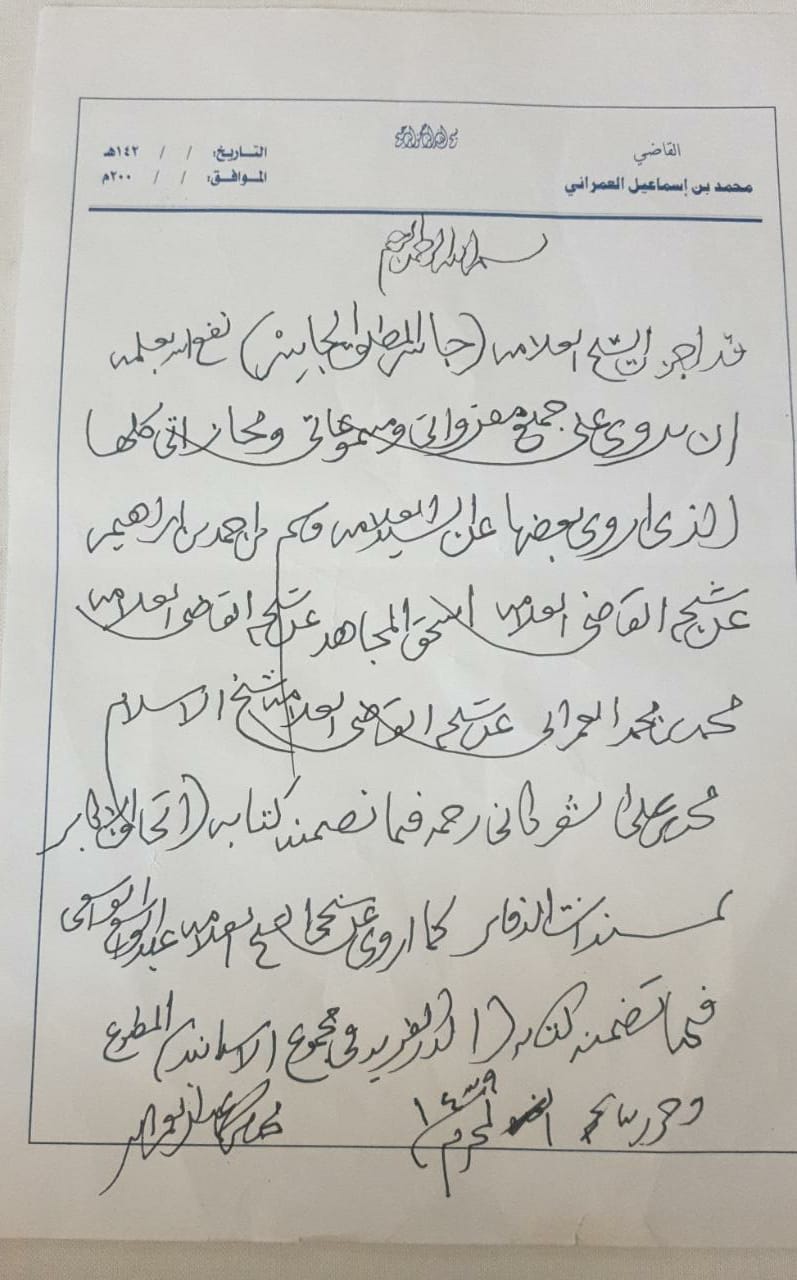 القاضي
محمد بن إسماعيل العمراني
التاريخ: / / ١٤٢هـ
الموافق: / / ٢٠٠م
بسم الله الرحمن الرحيم
قد اجزت الشيخ العلامه (جاسر المطلق الجاسر) نفع الله بعلمه
ان يروي عني جميع مقرواتي ومسموعاتي ومجازاتي كلها
الذي اروي بعضها عن السيد العلامه قاسم بن احمد بن ابراهيم
عن شيخه القاضي العلامه اسحق المجاهد عن شيخه القاضي العلامه
محمد بن محمد العمراني عن شيخه القاضي العلامه شيخ الاسلام
محمد بن علي الشوكاني رحمه فيما تضمنه كتابه (اتحاف الاكابر
بمسندات الدفاتر كما اروي عن شيخي الشيخ العلامه عبدالواسع الواسعي
فيما تضمنه كتابه (الدر الفريد في مجموع الاسانيد) المطبوع
وحرر محرم ١٤٣٩